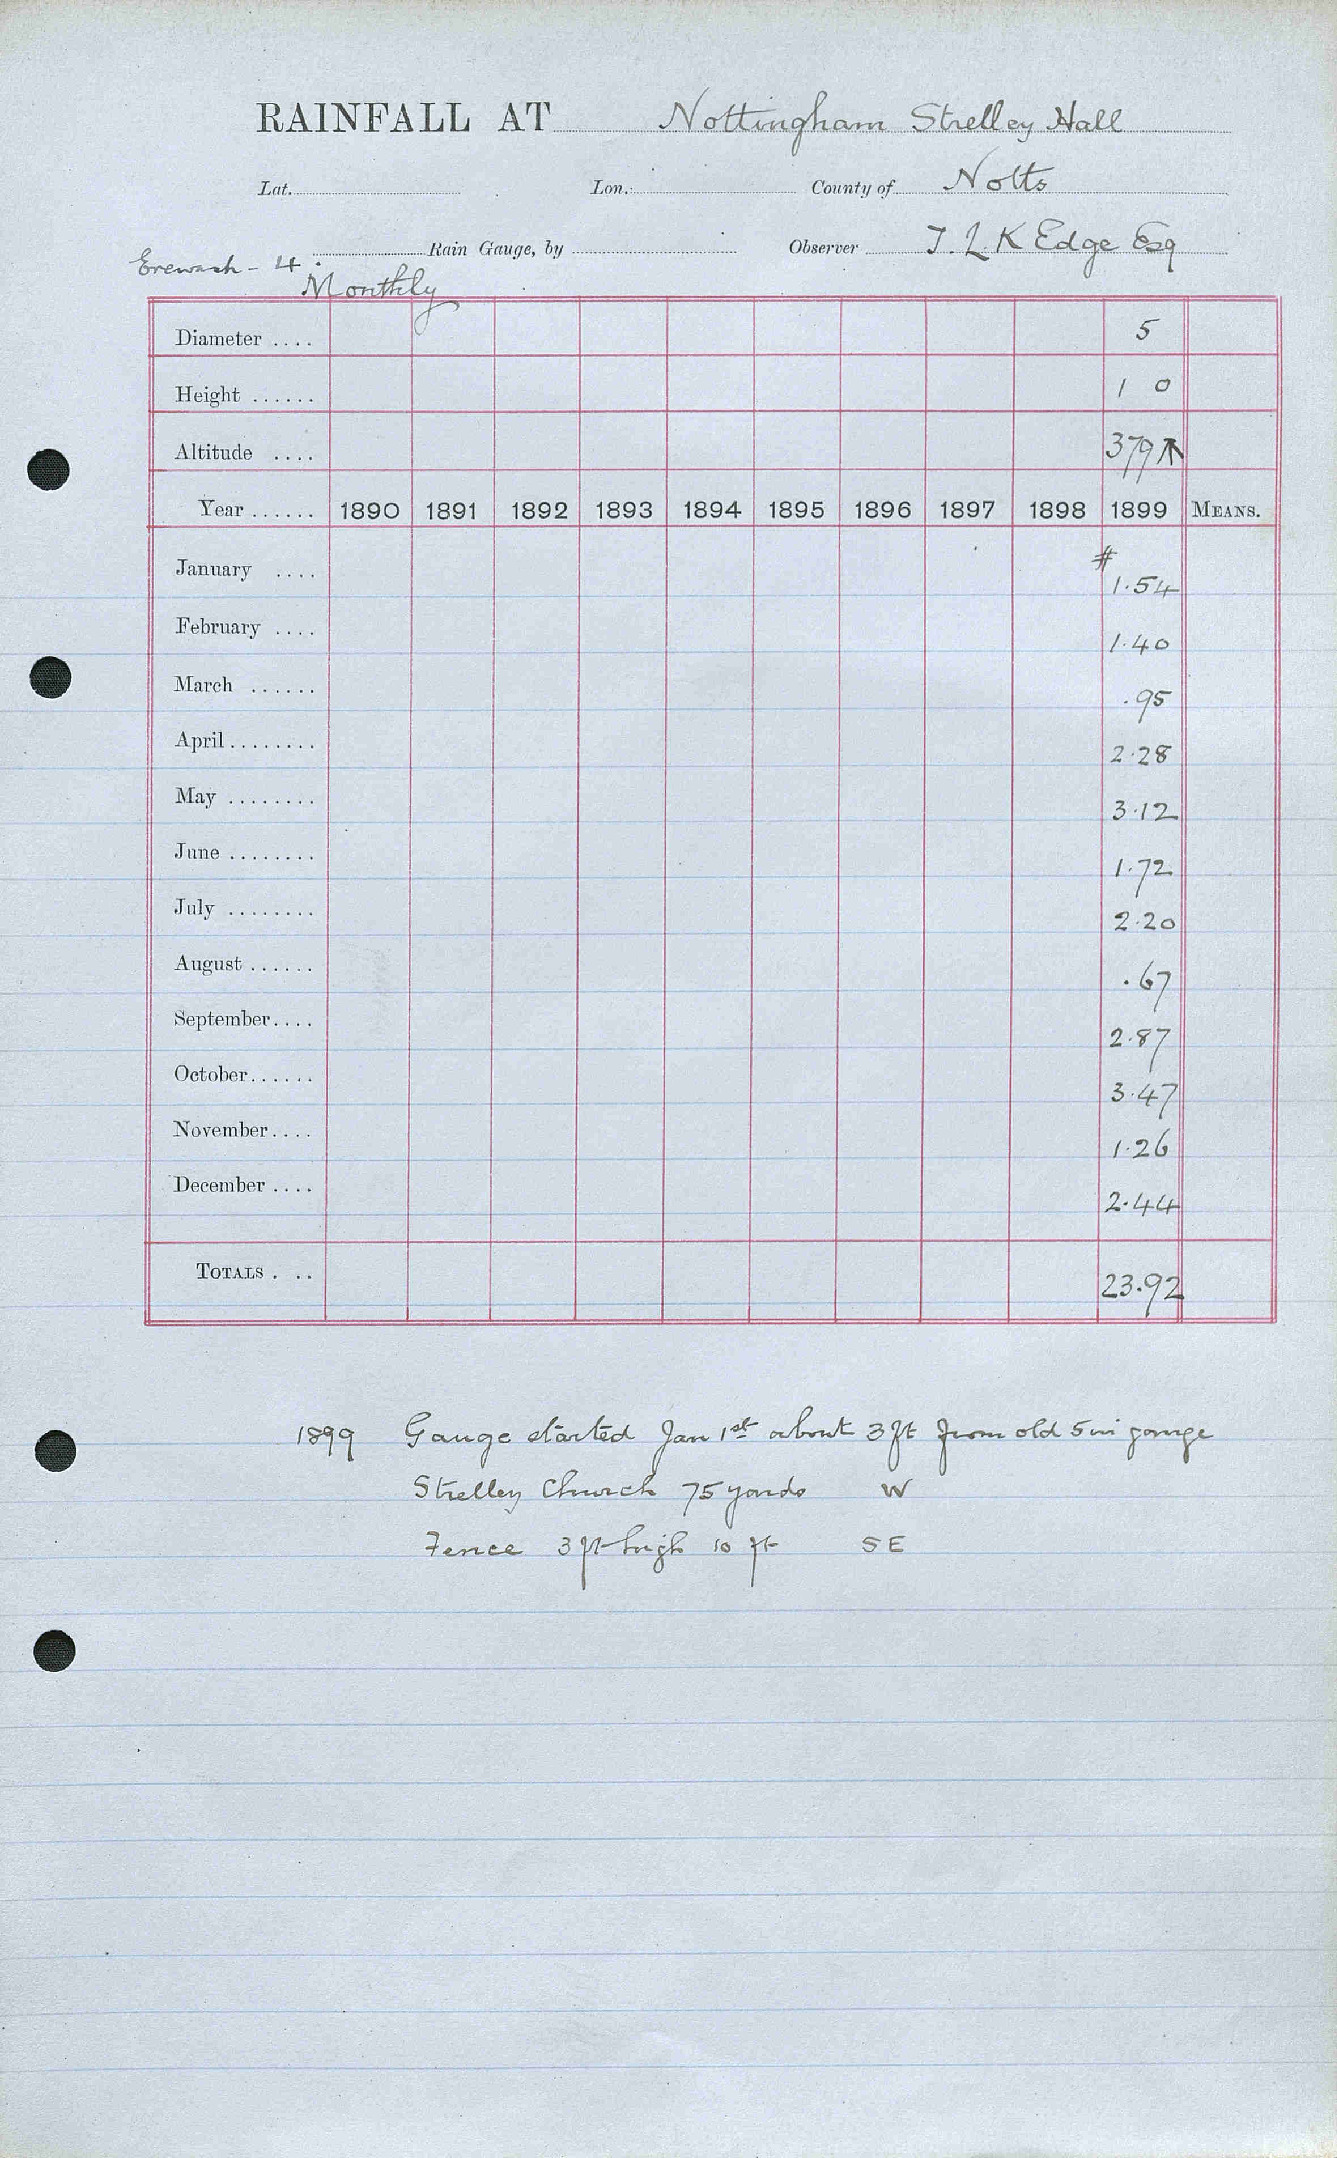 RAINFALL AT Nottingham Strelley Hall
Lat. Lon. County of Notts
Erewash - 4. Rain Gauge, by Observer T. L. K Edge Esq
Monthly
Diameter .... 5
Height ...... 1 0
Altitude .... 379
Year ...... 1890 1891 1892 1893 1894 1895 1896 1897 1898 1899 MEANS.
January .... # 1.54
February .... 1.40
March ...... .95
April ........ 2.28
May ........ 3.12
June ........ 1.72
July ........ 2.20
August ...... .67
September .... 2.87
October ...... 3.47
November .... 1.26
December .... 2.44
TOTALS . .. 23.92
1899 Gauge started Jan 1st about 3 ft from old 5 in gauge
Strelley Church 75 yards W
Fence 3 ft high 10 ft SE